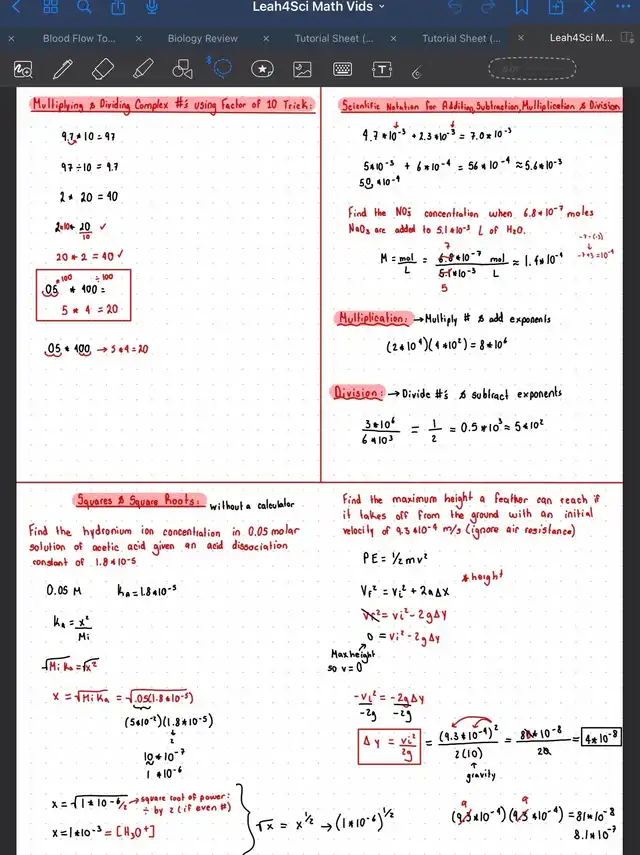 Leah4Sci Math Vids
Blood Flow To...
Biology Review
Tutorial Sheet (...
Tutorial Sheet (...
Leah4Sci M...
Multiplying & Dividing Complex #'s using Factor of 10 Trick:
9.7 * 10 = 97
97 ÷ 10 = 9.7
2 * 20 = 40
2*10 * 20/10 ✓
20 * 2 = 40 ✓
*100 ÷100
.05 * 400 =
5 * 4 = 20
.05 * 400 → 5*4=20
Scientific Notation for Adding, Subtraction, Multiplication & Division
4.7*10⁻³ + 2.3*10⁻³ = 7.0*10⁻³
5*10⁻³ + 6*10⁻⁴ = 56*10⁻⁴ ≈ 5.6*10⁻³
50*10⁻⁴
Find the NO₃⁻ concentration when 6.8*10⁻⁷ moles
NaO₃ are added to 5.1*10⁻³ L of H₂O.
-7-(-3)
↓
-7+3=10⁻⁴
7
M = mol/L = 6.8*10⁻⁷ mol / 5.1*10⁻³ L ≈ 1.4*10⁻⁴
5
Multiplication: → Multiply # & add exponents
(2*10⁴)(4*10²) = 8*10⁶
Division: → Divide #'s & subtract exponents
3*10⁶ / 6*10³ = 1/2 = 0.5*10³ ≈ 5*10²
Squares & Square Roots: without a calculator
Find the hydronium ion concentration in 0.05 molar
solution of acetic acid given an acid dissociation
constant of 1.8*10-5
0.05 M kA = 1.8*10⁻⁵
kA = x²/Mi
√Mi ka = √x²
x = √Mi Ka = √.05(1.8*10⁻⁵)
(5*10⁻²)(1.8*10⁻⁵)
↓
2
10*10⁻⁷
1*10⁻⁶
x = √1*10⁻⁶/2 → square root of power:
÷ by 2 (if even #)
x = 1*10⁻³ = [H₃O⁺]
√x = x^1/2 → (1*10⁻⁶)^1/2
Find the maximum height a feather can reach if
it takes off from the ground with an initial
velocity of 9.3*10⁻⁴ m/s (ignore air resistance)
PE = ½mv²
*height
Vf² = Vi² + 2aΔX
Vf² = Vi² - 2gΔy
0 = Vi² - 2gΔy
Max height
so v=0
-Vi²/-2g = -2gΔy/-2g
Δy = Vi²/2g = (9.3*10⁻⁴)²/2(10) = 80*10⁻⁸/20 = 4*10⁻⁸
↑
gravity
9 9
(9.3*10⁻⁴)(9.3*10⁻⁴) = 81*10⁻⁸
8.1*10⁻⁷